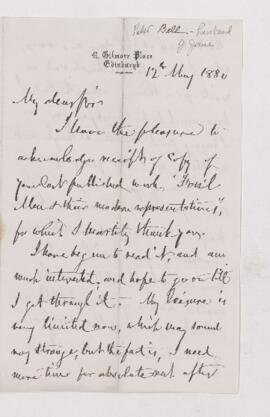 Peter Bell - husband
of Jane
2, Gilmore Place
Edinburgh
12th May 1880
My dear Sir
I have the pleasure to
acknowledge receipt of copy of
your last published work, "Fossil
Men & their modern representatives",
for which I heartily thank you.
I have begun to read it and am
much interested, and hope to go on till
I get through it. My leisure is
very limited now, which may sound
very strange, but the fact is, I need
more time for absolute rest after